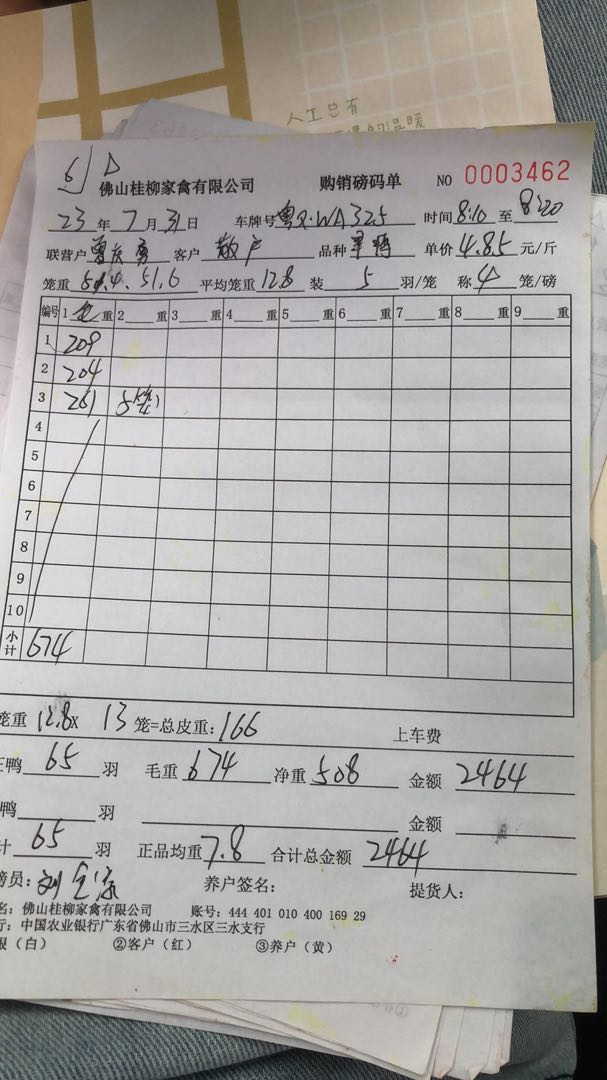 人生总有
的温暖
佛山桂柳家禽有限公司 购销磅码单 NO 0003462
23年7月31日 车牌号粤X·WA325 时间8:10至8:20
联营户 客户散户 品种 单价4.85元/斤
笼重51.4.51.6平均笼重12.8装5羽/笼 称4笼/磅
编号 1 重 2 重 3 重 4 重 5 重 6 重 7 重 8 重 9 重
1 209
2 204
3 261 5笼
4
5
6
7
8
9
10
小计 674
笼重12.8X 13笼=总皮重:166 上车费
鸭65羽 毛重674净重508 金额2464
鸭 羽 金额
计65羽 正品均重7.8合计总金额2464
磅员:刘 养户签名: 提货人:
名:佛山桂柳家禽有限公司 账号:444 401 010 400 169 29
行:中国农业银行广东省佛山市三水区三水支行
根(白) ②客户(红) ③养户(黄)